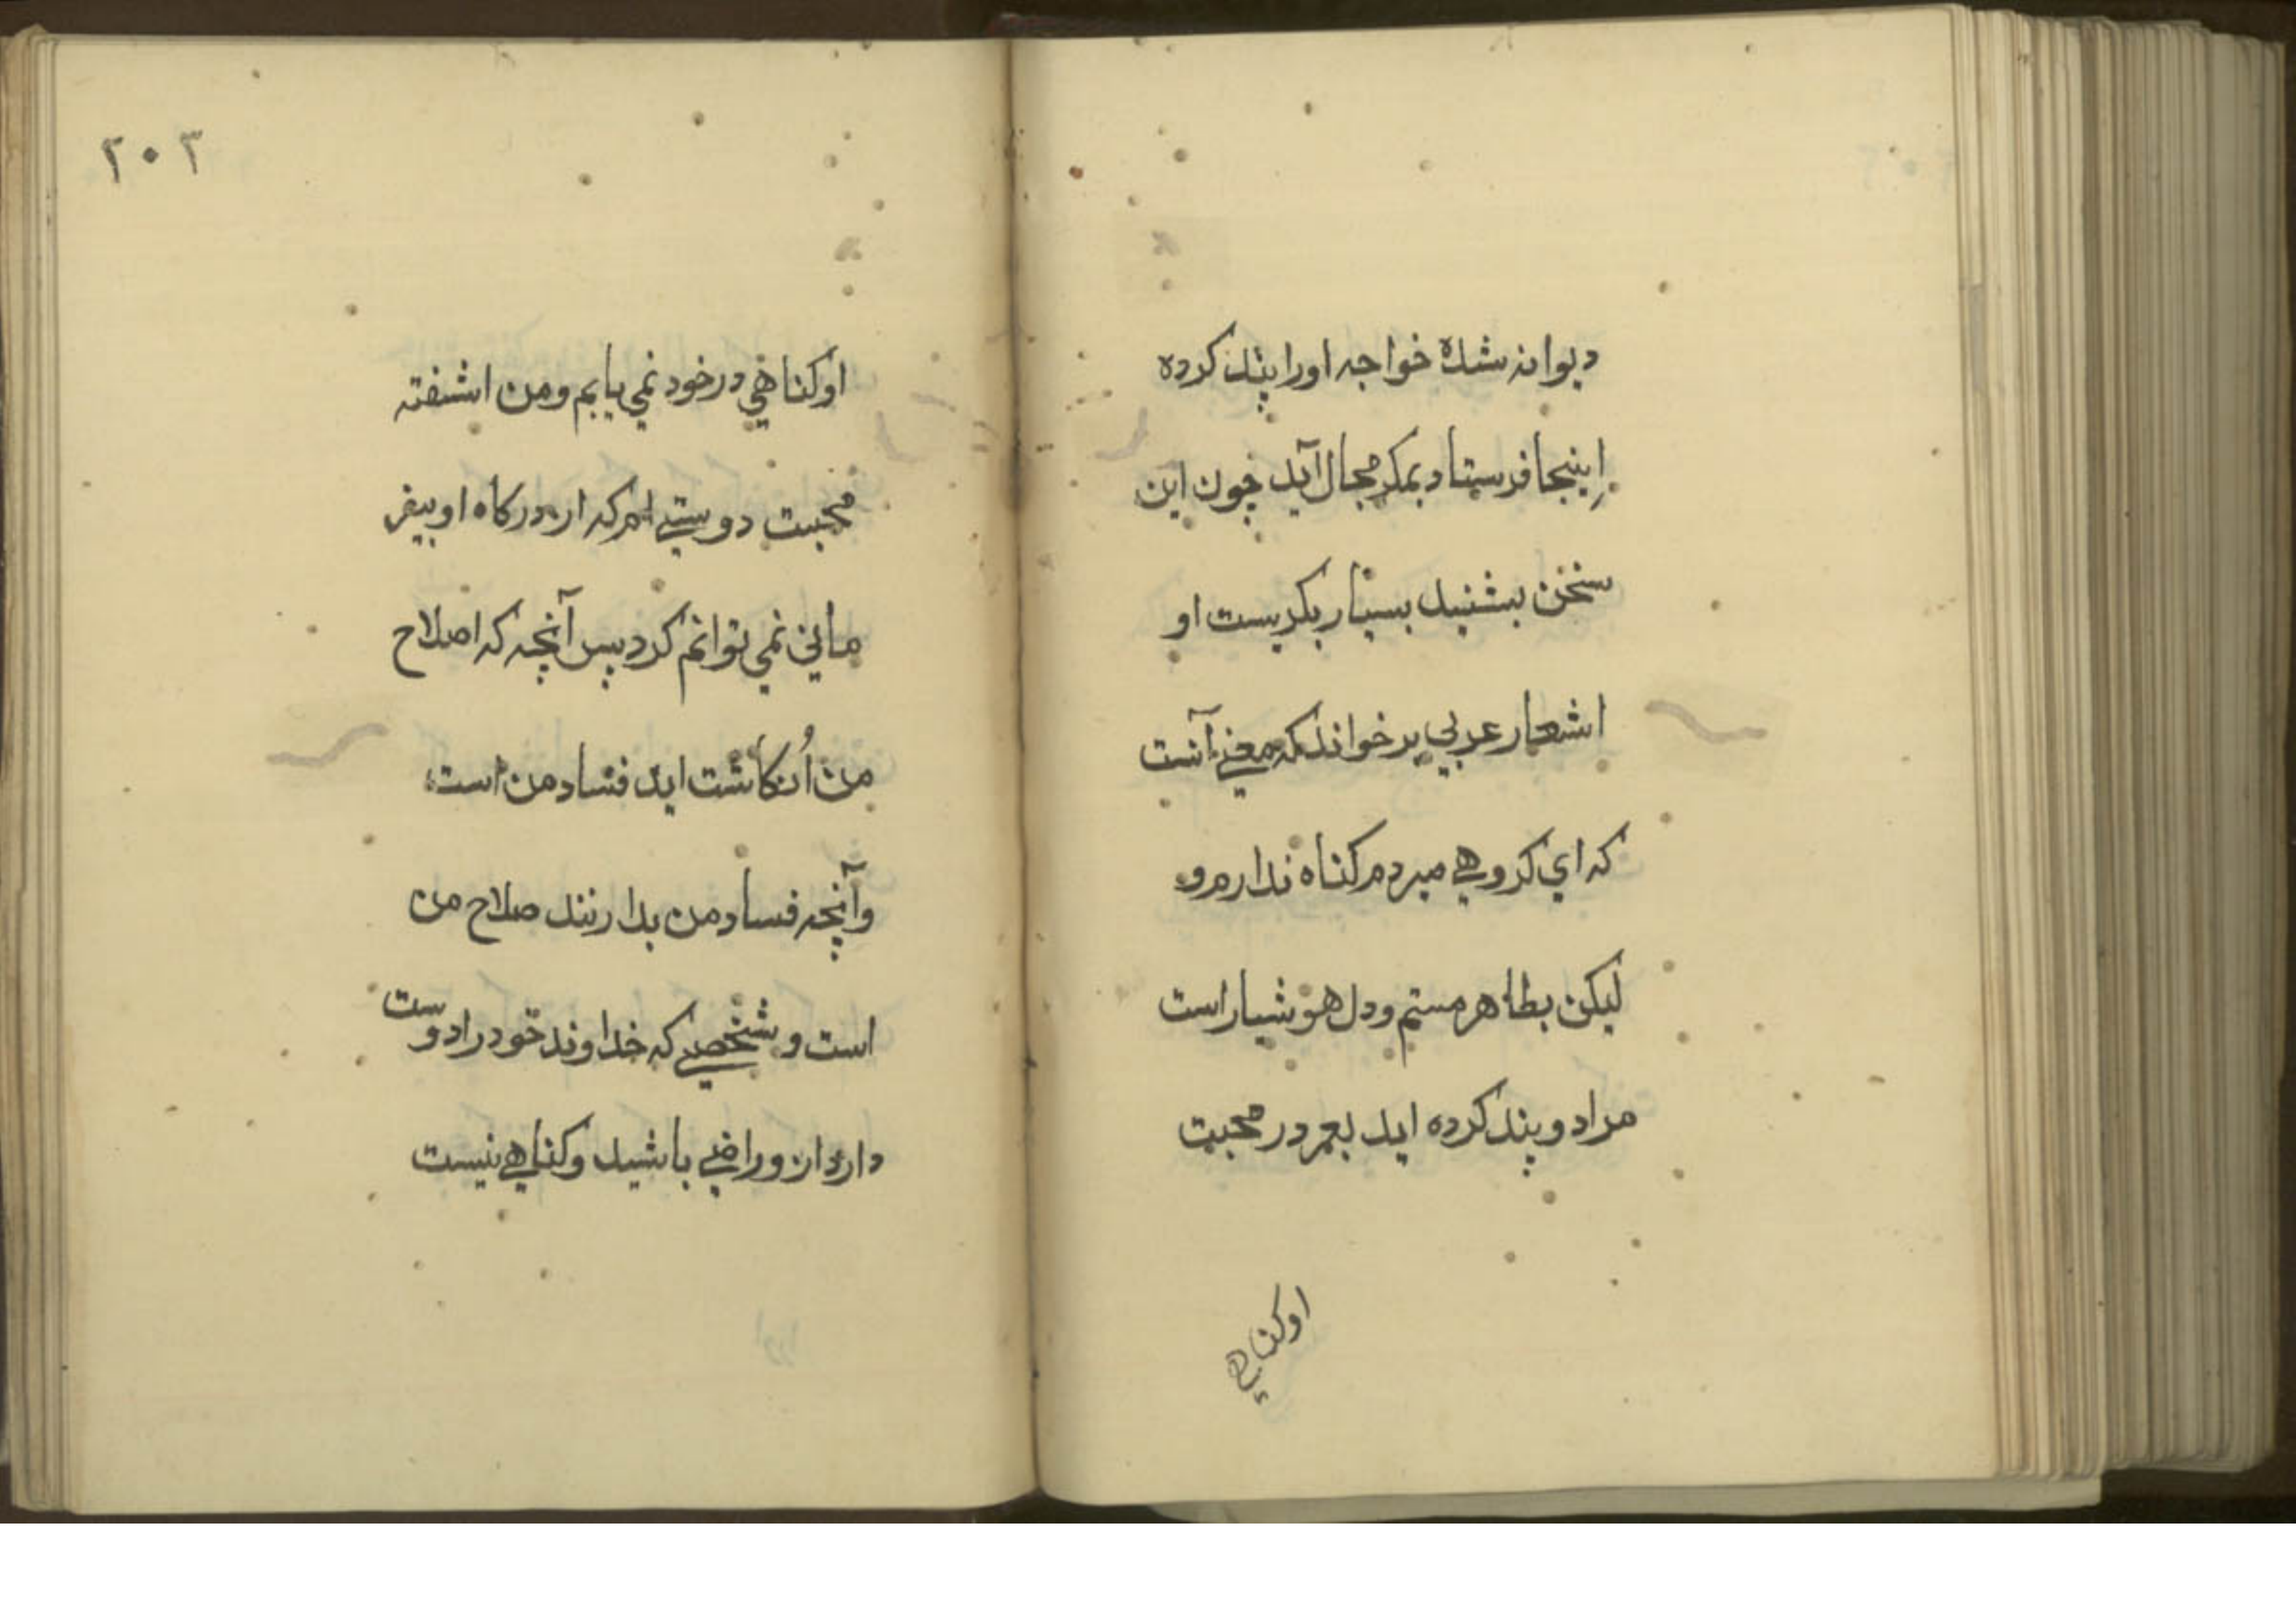 دیوانه شده خواجه اورا پند کرده
اِینجا فرستاد بمکر مجال آید چون این
سخن بشنید بسیار بکریست او
اشعار عربي بر خواند که معنے آنست
که اي کروهي میردم کناه ندارم و
لیکن بظاهر مستم و دل هوشیار است
مراد و پند کرده اید بعیر در محبت
او کناهي
۲۰۳
او کناهي در خود نمي یابم و من اشفته
محبت دوستے ام که از درکاه او بیفر
ماني نمي توانم کرد پس آنچه که اصلاح
من اُنکاشت اید فساد من است
وآنچه فساد من بدارنند صلاح من
است و شخصے که خداوند خود را دوست
دارد ازو راضے باشید و کناهے نیست